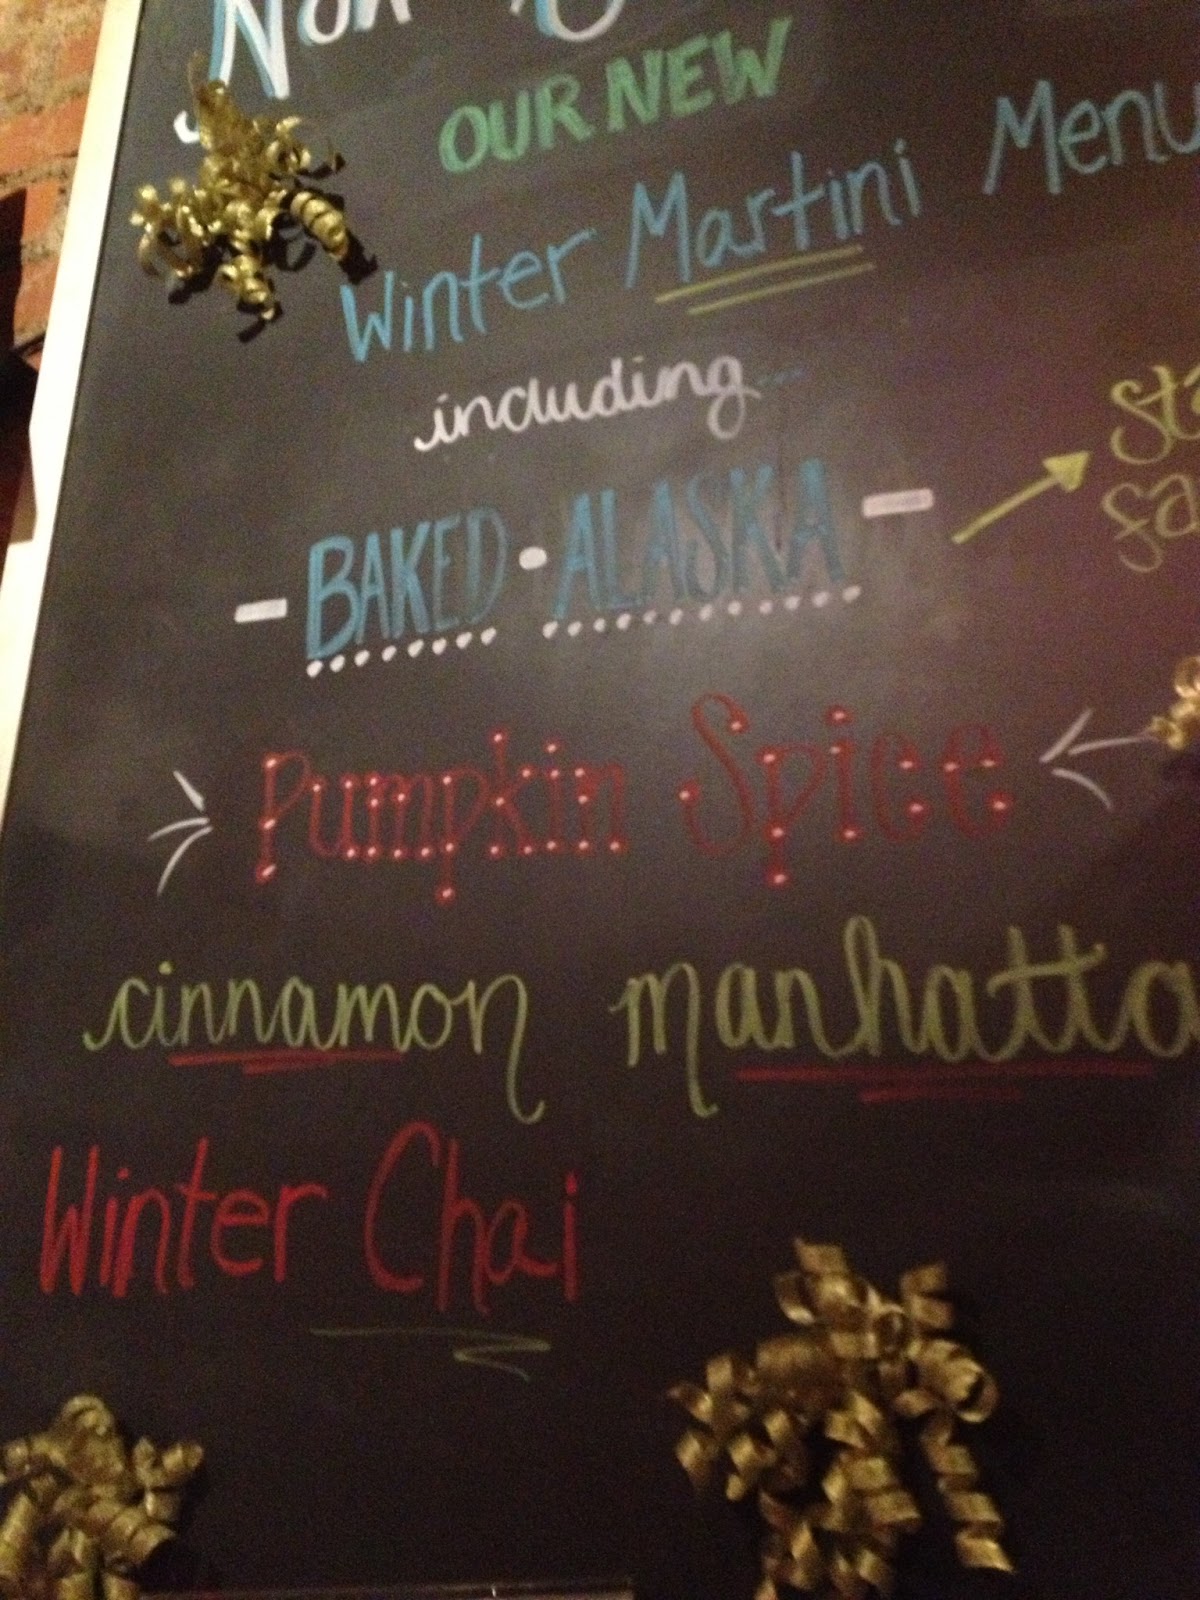 OUR NEW
Winter Martini Menu
including...
- BAKED • ALASKA -
Pumpkin Spice
cinnamon manhatta
Winter Chai